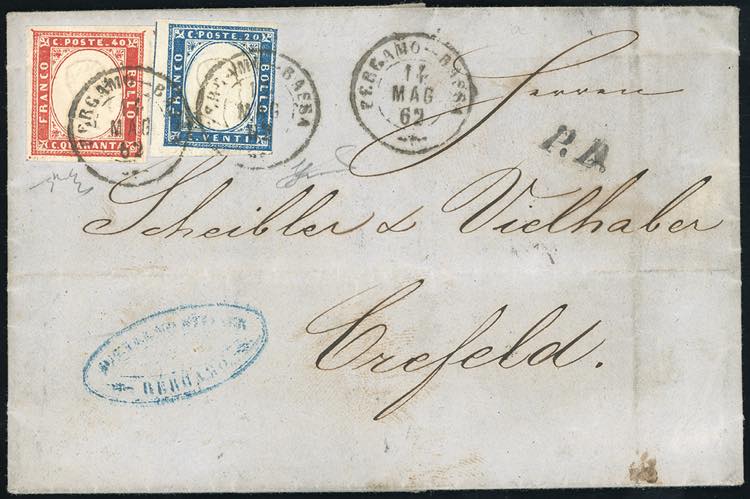 C. POSTE. 40
FRANCO
BOLLO
C. QUARANTA
C. POSTE. 20
FRANCO
BOLLO
C. VENTI
BERGAMO-BASSA
MAG
62
BERGAMO-BASSA
BERGAMO-BASSA
17
MAG
62
P.D.
Herren
Scheibler & Vielhaber
Crefeld.
BERGAMO